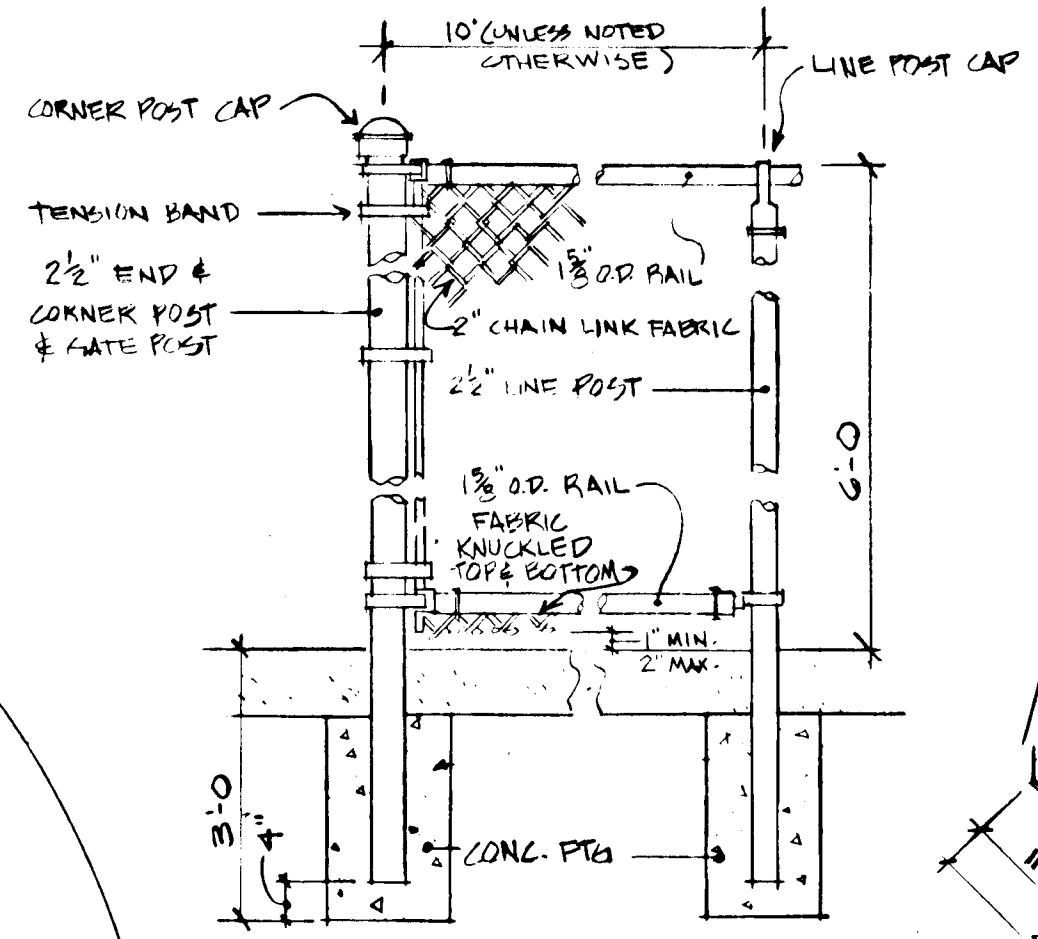 10' (UNLESS NOTED
OTHERWISE)
LINE POST CAP
CORNER POST CAP
TENSION BAND
2½" END &
CORNER POST
& GATE POST
1⅝" O.D. RAIL
2" CHAIN LINK FABRIC
2½" LINE POST
6'-0
1⅝" O.D. RAIL
FABRIC
KNUCKLED
TOP & BOTTOM
1" MIN.
2" MAX.
3'-0
4"
CONC. FTG